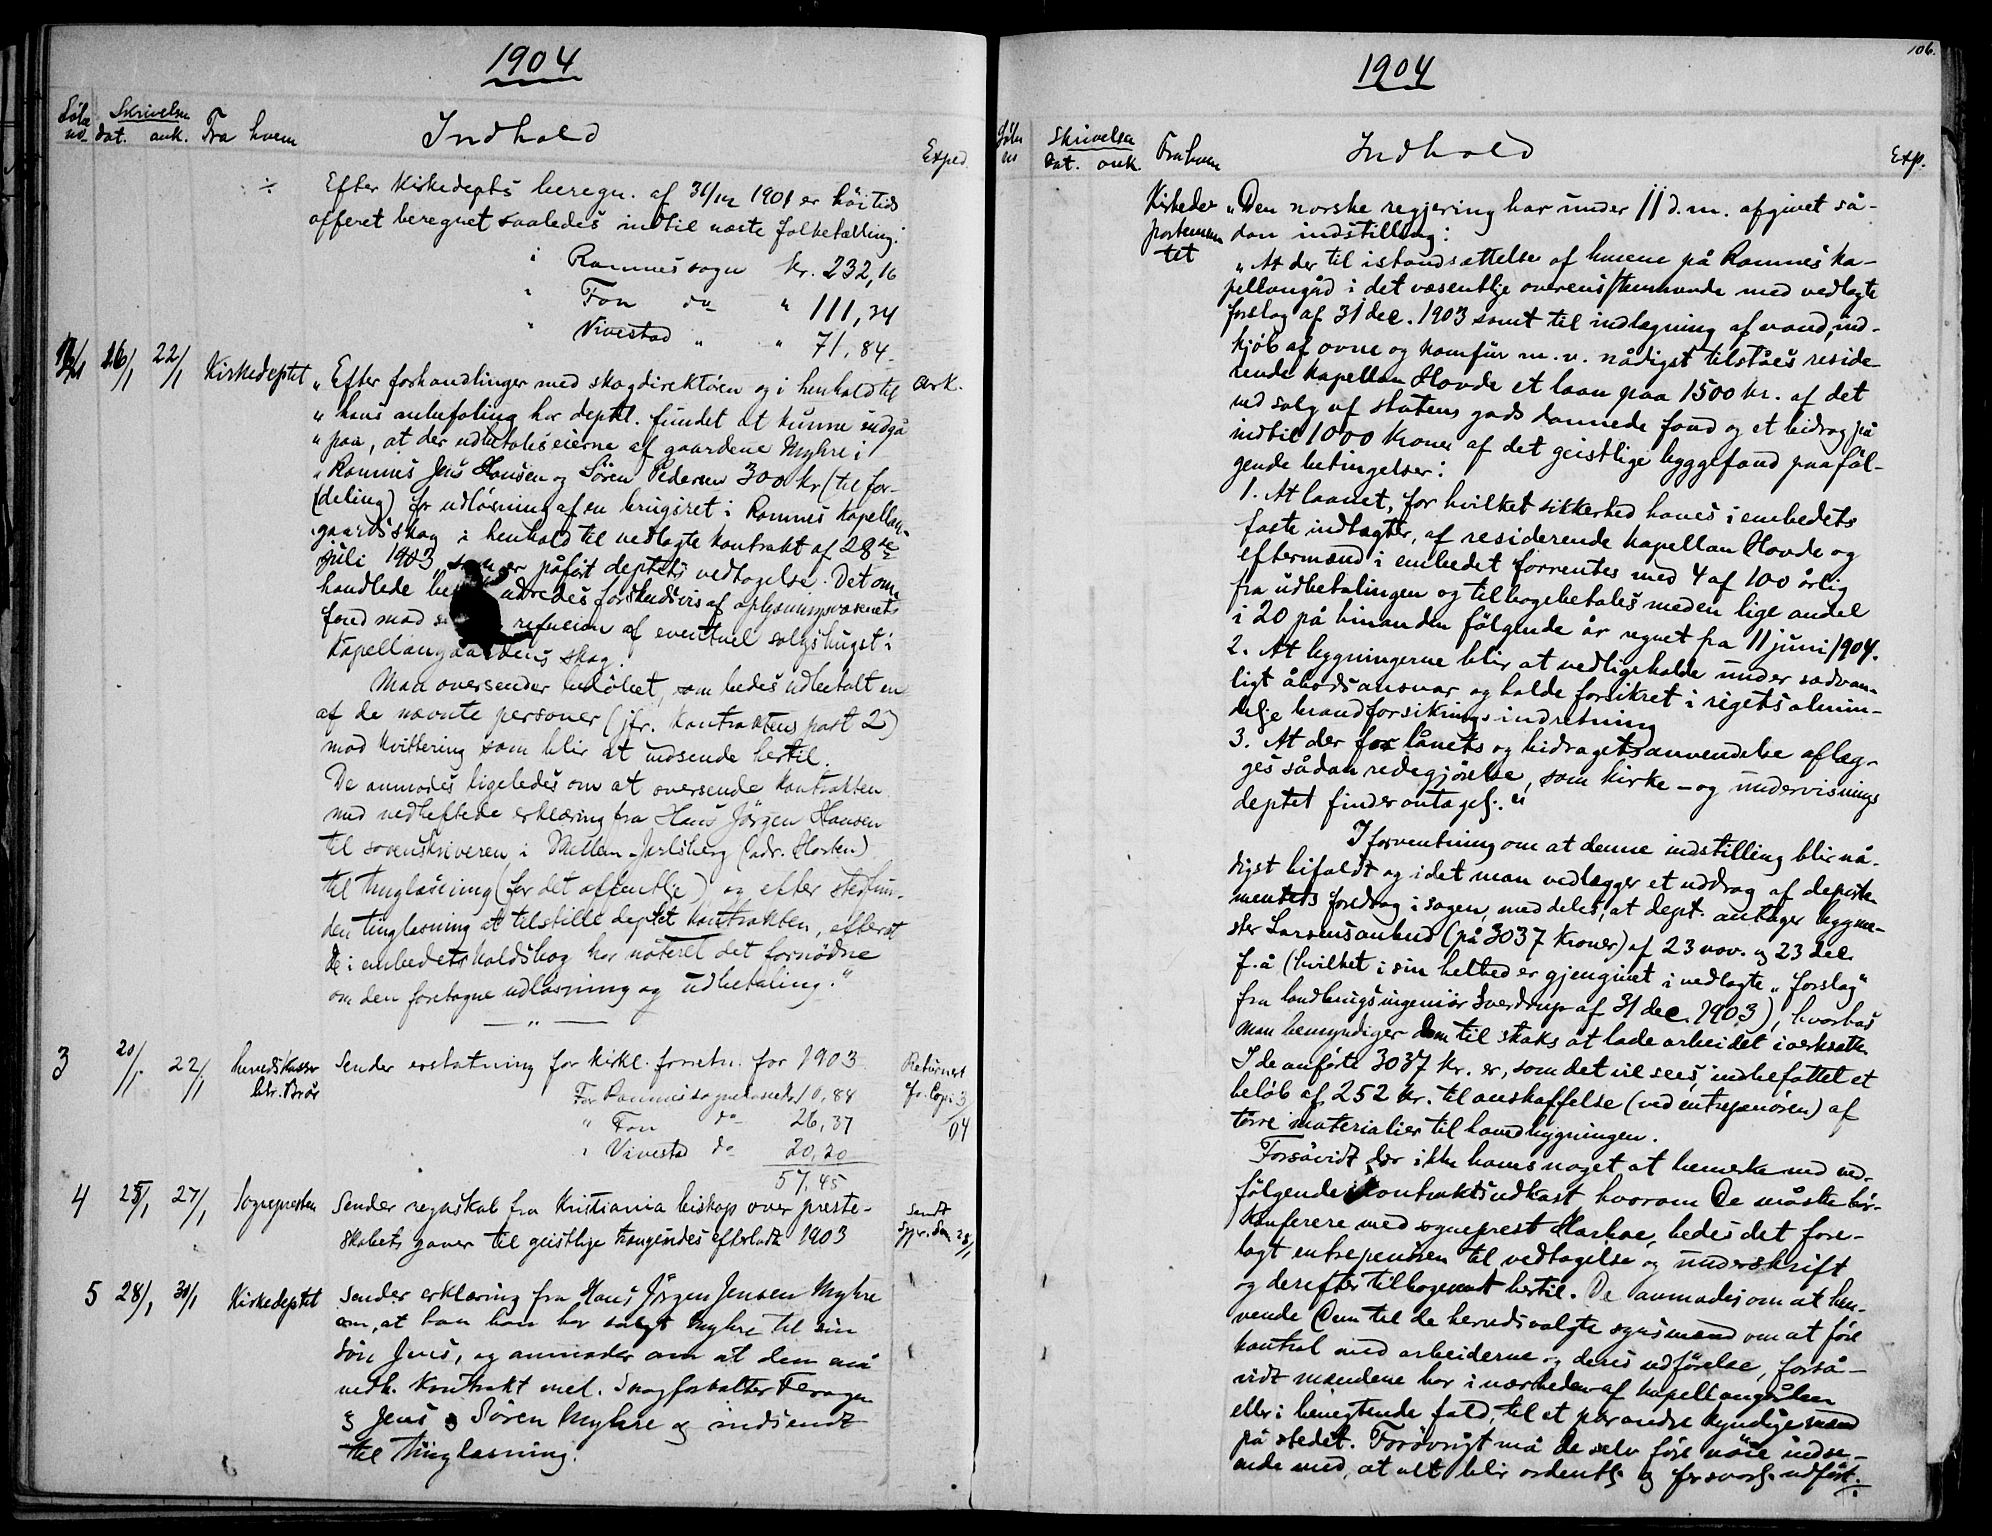 1904
Løbe Skrivelsen
no. dat. ank. Fra hvem Indhold Exped.
÷ Efter Kirkedepts beregn. af 31/12 1901 er höitids
offeret beregnet saaledes indtil næste folketælling:
i Ramnes sogn kr. 232,16
" Fon do " 111,34
" Vivestad " " 71,84
26/1 22/1 Kirkedeptet „Efter forhandlinger med skogdirektören og i henhold til ark.
„ hans anbefaling har deptet. fundet at kunne indgå
„ paa, at der udbetales eierne af gaardene Myhre i
„ Ramnes Jens Hansen og Sören Pedersen 300 kr (til for-
(deling) for udløsning af en brugsret i Ramnes Kapellan-
gaards skog i henhold til vedlagte kontrakt af 28de
juli 1903, som er påført deptets vedtagelse. Det om-
handlede udredes forskudsvis af oplysningsvæsenets
fond mod refusion af eventuel salgshugst i
Kapellangaardens skog.
Man oversender beløbet, som bedes udbetalt en
af de nævnte personer (jfr. kontraktens post 2)
mod kvittering som blir at indsende hertil.
De anmodes ligeledes om at oversende kontrakten
med vedheftede erklæring fra Hans Jörgen Hansen
til sorenskriveren i Mellem-Jarlsberg (adr. Horten)
til tinglæsning (for det offentlje) og efter stedfun-
den tinglæsning at tilstille deptet kontrakten, efterat
De i embedets kaldsbog har noteret det fornødne
om den foretagne udløsning og udbetaling."
— " —
3 20/1 22/1 herredskasser Sender erstatning for kirkl. forretn. for 1903 Returnert
For Ramnes sogn 10,88 cfr. Copi 3/04
" Fon do 26,37
" Vivestad do 20,20
57,45
4 25/1 27/1 Sognepresten Sender regnskab fra Kristiania biskop over preste- sendt
skabets gaver til geistlige trængendes efterladte 1903 28/1
5 28/1 30/1 Kirkedeptet Sender erklæring fra Hans Jörgen Jensen Myhre
om, at han har solgt Myhre til sin
sön Jens, og anmoder om at den må
vedh. kontrakt mel. Skogforvalter
og Jens & Sören Myhre og indsendt
til tinglæsning.
1904
106.
Løbe Skrivelsen
no dat. ank. Fra hvem Indhold Exp.
Kirkede- „Den norske regjering har under 11 d.m. afgivet så-
partemen- dan indstilling:
tet „At der til istandsættelse af husene på Ramnes ka-
pellangård i det væsentlje overensstemmende med vedlagte
forslag af 31 dec. 1903 samt til indlægning af vand, ind-
kjöb af ovne og komfur m.v. nådigst tilståes reside-
rende kapellan Hovde et laan paa 1500 kr. af det
ved salg af statens gods dannede fond og et bidrag på
indtil 1000 kroner af det geistlige byggefond paa föl-
gende betingelser:
1. At laanet, for hvilket sikkerhed haves i embedets
faste indtægter, af residerende kapellan Hovde og
eftermænd i embedet forrentes med 4 af 100 årlig
fra udbetalingen og tilbagebetales med en lige andel
i 20 på hinanden fölgende år regnet fra 11 juni 1904.
2. At bygningerne blir at vedligeholde under sædvan-
ligt åbodsansvar og holde forsikret i rigets almin-
delje brandforsikringsindretning
3. At der for lånets og bidragets anvendelse aflæg-
ges sådan redegjörelse, som kirke- og undervisnings
deptet finder antagel."
I forventning om at denne indstilling blir nå-
digst bifaldt og idet man vedlægger et uddrag af departe-
mentets foredrag i sagen, meddeles, at dept. antager bygme-
ster Larsens anbud (på 3037 kroner) af 23 nov. og 23 dec.
f. å (hvilket i sin helhed er gjengivet i vedlagte „forslag"
fra landbrugsingeniör Sverdrup af 31 dec. 1903), hvorhos
man bemyndiger Dem til straks at lade arbeidet iverksætte.
I de anförte 3037 kr. er, som det vil sees, indbefattet et
belöb af 252 kr. til anskaffelse (ved entreprenören) af
törre materialier til hovedbygningen.
Forsåvidt der ikke haves noget at bemerke ved ved-
fölgende kontraktsudkast hvorom De måtte bör
konferere med sogneprest Harboe, bedes det fore-
lagt entreprenören til vedtagelse og underskrift
og derefter tilbagesendt hertil. De anmodes om at hen-
vende Dem til de herredsvalgte synsmænd om at före
kontrol med arbeiderne og deres udförelse, forså-
vidt mændene bor i nærheden af kapellangården
eller i benegtende fald, til et par andre kyndige mænd
på stedet. Forövrigt må De selv före nöie indse-
ende med, at alt blir ordentl. og forsvarl. udfört.